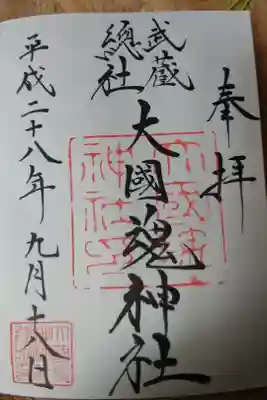 奉拝
武蔵
總社
大國魂神社
平成二十八年九月十八日